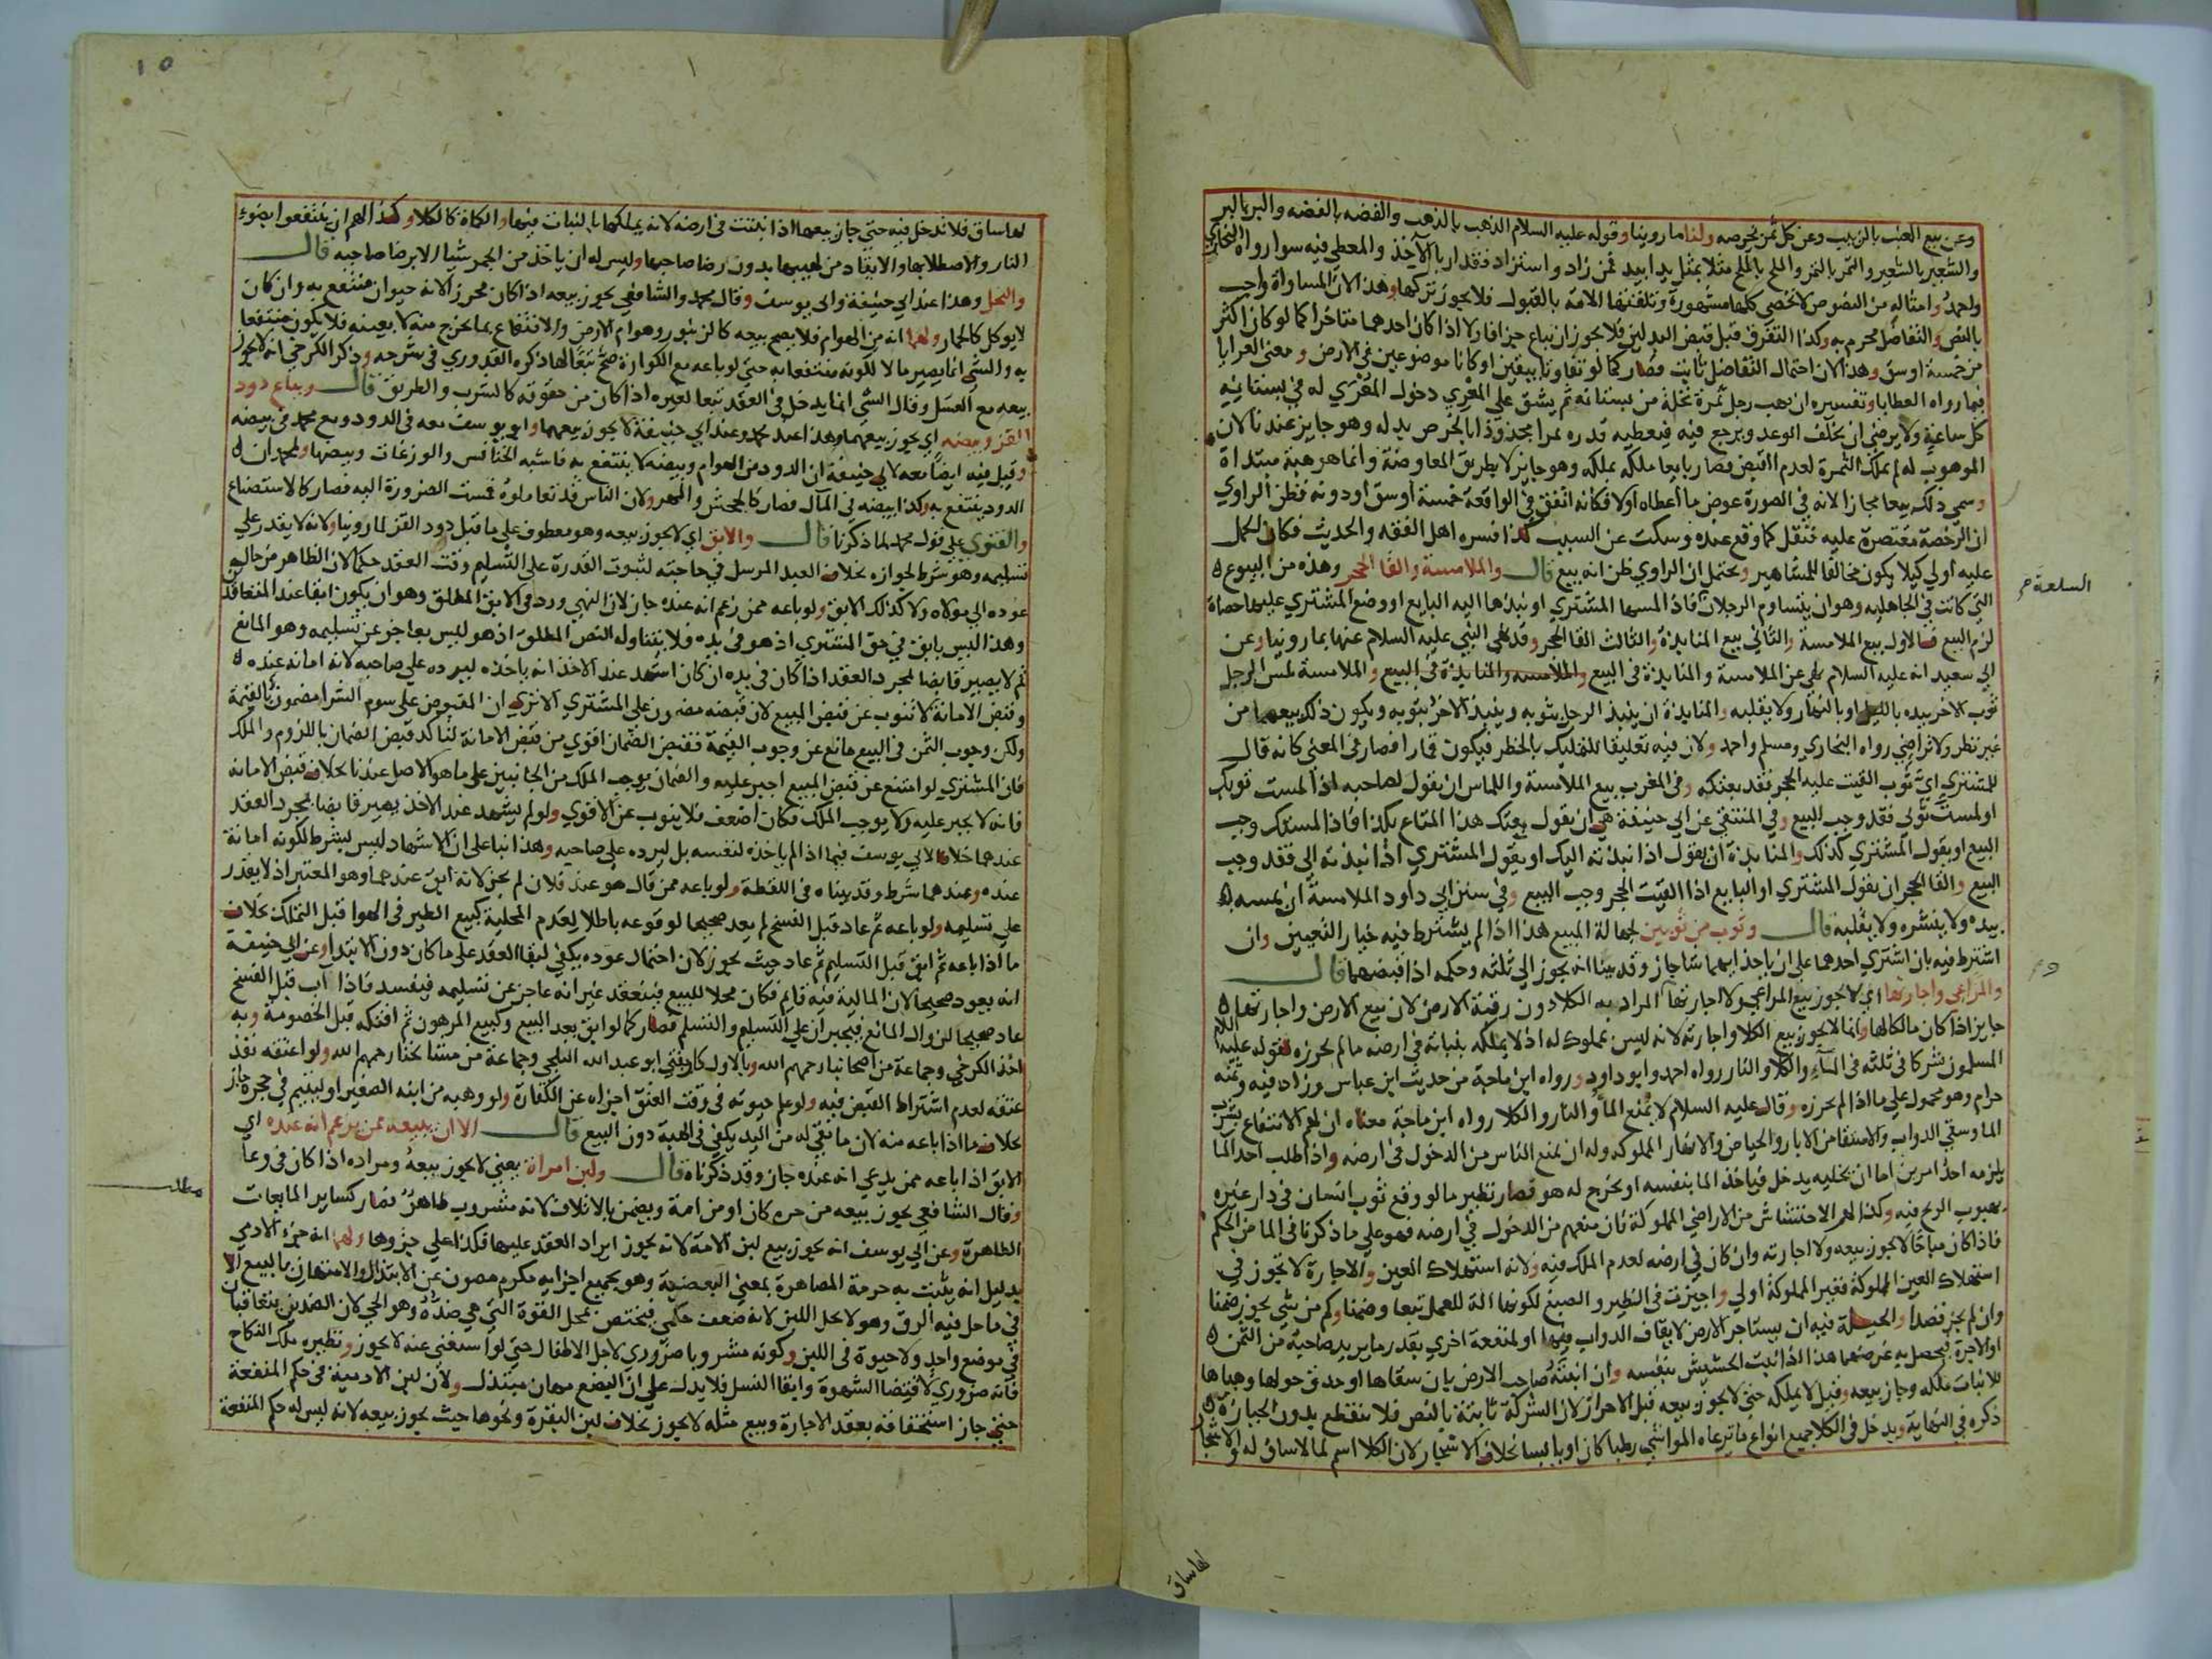 وعن بيع العنب بالزبيب وعن كل ثمر بخرصه ولنا ما روينا وقوله عليه السلام الذهب بالذهب والفضه بالفضه والبر بالبر
والشعير بالشعير والتمر بالتمر والملح بالملح مثلا بمثل يدا بيد فمن زاد واستزاد فقد اربا الآخذ والمعطي فيه سوا رواه البخاري
واحمد وامثاله من النصوص لا تحصي كلها مشهورة وتلقتها الامة بالقبول فلا يجوز تركها وهذا لان المساواة واجب
بالنص والتفاضل محرم به وكذا التفرق قبل قبض البدلين فلا يجوز ان يباع جزافا ولا اذا كان احدهما متاخرا كما لو كان اكثر
من خمسة اوسق وهذا لان احتمال التفاضل ثابت فصار كما لو تفاوتا بيقين او كانا موضوعين في الارض ومعني العرايا
فيما رواه العطايا وتفسيره ان يهب رجل ثمرة نخلة من بستانه ثم يشق علي المعري دخول المعري له في بستانه
كل ساعة ولا يرضي ان يخلف الوعد ويرجع فيه فيعطيه قدره تمرا مجذوذا بالخرص بدله وهو جايز عندنا لان
الموهوب له لم يملك الثمرة لعدم القبض فصار بايعا ملكه بملكه وهو جايز لا بطريق المعاوضة وانما هو هبة مبتداة
وسمي ذلك بيعا مجازا لانه في الصورة عوض ما اعطاه اولا فكانه اتفق في الواقعة خمسة اوسق او دونه فظن الراوي
ان الرخصة مقتصرة عليه فنقل كما وقع عنده وسكت عن السبب كذا فسره اهل الفقه والحديث فكان الحمل
عليه اولي كيلا يكون مخالفا للمشاهير ويحتمل ان الراوي ظن انه بيع قال والملامسة والقا الحجر وهذه من البيوع
التي كانت في الجاهليه وهو ان يتساوم الرجلان فاذا لمسها المشتري او نبذها اليه البايع او وضع المشتري عليها حصاة
لزم البيع فالاول بيع الملامسة والثاني بيع المنابذة والثالث القا الحجر وقد نهي النبي عليه السلام عنها بما روينا وعن
ابي سعيد انه عليه السلام نهي عن الملامسة والمنابذة في البيع والملامسة والمنابذة في البيع والملامسة لمس الرجل
ثوب الاخر بيده بالليل او بالنهار ولا يقلبه والمنابذة ان ينبذ الرجل بثوبه وينبذ الاخر بثوبه ويكون ذلك بيعهما من
غير نظر ولا تراضي رواه البخاري ومسلم واحمد ولان فيه تعليقا للتمليك بالخطر فيكون قمارا فصار في المعني كانه قال
للمشتري اي ثوب القيت عليه الحجر فقد بعتكه وفي المغرب بيع الملامسة واللماس ان يقول لصاحبه اذا لمست ثوبك
او لمست ثوبي فقد وجب البيع وفي المنتقي عن ابي حنيفة هي ان يقول بعتك هذا المتاع بكذا فاذا لمستك وجب
البيع او يقول المشتري كذلك والمنابذة ان يقول اذا نبذته اليك او يقول المشتري اذا نبذته الي فقد وجب
البيع والقا الحجر ان يقول المشتري او البايع اذا القيت الحجر وجب البيع وفي سنن ابي داود الملامسة ان يمسه
بيده ولا ينشره ولا يقلبه قال وثوب من ثوبين لجهالة المبيع هذا اذا لم يشترط فيه خيار التعيين وان
اشترط فيه بان اشتري احدهما علي ان ياخذ ايهما شا جاز وقد بينا انه يجوز الي ثلثه وحكمه اذا قبضهما قال
والمراعي واجارتها اي لا يجوز بيع المراعي ولا اجارتها المراد به الكلا دون رقبة الارض لان بيع الارض واجارتها
جايز اذا كان مالكا لها وانما لا يجوز بيع الكلا واجارته لانه ليس بمملوك له اذ لا يملكه بنباته في ارضه ما لم يحرزه لقوله عليه السلام
المسلمون شركا في ثلثه في الماء والكلا والنار رواه احمد وابو داود ورواه ابن ماجة من حديث ابن عباس وزاد فيه وثمنه
حرام وهو محمول علي ما اذا لم يحرزه وقال عليه السلام لا يمنع الما والنار والكلا رواه ابن ماجة معناه ان لهم الانتفاع بشرب
الما وسقي الدواب والاستقا من الابار والحياض والانهار المملوكه وله ان يمنع الناس من الدخول في ارضه واذا طلب احد الما
يلزمه احد امرين اما ان يخليه يدخل فياخذ الما بنفسه او يخرج له هو فصار نظير ما لو وقع ثوب انسان في دار غيره
بهبوب الريح فيه وكذا لهم الاحتشاش من الاراضي المملوكة فان منعهم من الدخول في ارضه فهو علي ما ذكرنا في الما من الحكم
فاذا كان مباحا لا يجوز بيعه ولا اجارته وان كان في ارضه لعدم الملك فيه ولانه استهلاك العين والاجارة لا تجوز في
استهلاك العين المملوكة فغير المملوكة اولي واجيزت في الظير والصبغ لكونها الة للعمل تبعا وضمنا وكم من شي يجوز ضمنا
وان لم يجز قصدا والحيلة فيه ان يستاجر الارض لايقاف الدواب فيها او لمنفعة اخري بقدر ما يريد صاحبه من الثمن
او الاجرة فيحصل به غرضهما هذا اذا نبت الحشيش بنفسه وان انبته صاحب الارض بان سقاها او حدق حولها وهياها
للانبات ملكه وجاز بيعه وقيل لا يملكه حتي لا يجوز بيعه قبل الاحراز لان الشركة ثابتة بالنص فلا تنقطع بدون الحيازة
ذكره في النهاية ويدخل في الكلا جميع انواع ما ترعاه المواشي رطبا كان او يابسا بخلاف الاشجار لان الكلا اسم لما لا ساق له والاشجار
لها ساق
السلعة
١٥
لها ساق فلا تدخل فيه حتي جاز بيعها اذا نبتت في ارضه لانه يملكها بالنبات فيها والكماة كالكلا وكذا لهم ان ينتفعوا بضوء
النار والاصطلا بها والايقاد من لهيبها بدون رضا صاحبها وليس له ان ياخذ من الجمر شيا الا برضا صاحبه قال
والنحل وهذا عند ابي حنيفة وابي يوسف وقال محمد والشافعي يجوز بيعه اذا كان محرزا لانه حيوان منتفع به وان كان
لا يوكل كالحمار ولهما انه من الهوام فلا يصح بيعه كالزنبور وهوام الارض والانتفاع بما يخرج منه لا بعينه فلا يكون منتفعا
به والشي انما يصير مالا لكونه منتفعا به حتي لو باعه مع الكوارة صح تبعا لها ذكره القدوري في شرحه وذكر الكرخي انه لا يجوز
بيعه مع العسل وقال الشي انما يدخل في العقد تبعا لغيره اذا كان من حقوقه كالشرب والطريق قال ويباع دود
القز وبيضه اي يجوز بيعهما وهذا عند محمد وعند ابي حنيفة لا يجوز بيعهما وابو يوسف معه في الدود ومع محمد في بيضه
وقيل فيه ايضا معه لابي حنيفة ان الدود من الهوام وبيضه لا ينتفع به فاشبه الخنافس والوزغات وبيضها ولمحمد ان
الدود ينتفع به وكذا بيضه في المآل فصار كالجحش والمهر ولان الناس قد تعاملوه فمست الضرورة اليه فصار كالاستصناع
والفتوي علي قول محمد لما ذكرنا قال والابق اي لا يجوز بيعه وهو معطوف علي ما قبل دود القز لما روينا ولانه لا يقدر علي
تسليمه وهو شرط لجوازه بخلاف العبد المرسل في حاجته لثبوت القدرة علي التسليم وقت العقد حكما لان الظاهر من حاله
عوده الي مولاه ولا كذلك الابق ولو باعه ممن زعم انه عنده جاز لان النهي ورد في الابق المطلق وهو ان يكون ابقا عند المتعاقدين
وهذا ليس بابق في حق المشتري اذ هو في يده فلا يتناوله النص المطلق اذ هو ليس بعاجز عن تسليمه وهو المانع
ثم لا يصير قابضا لمجرد العقد اذا كان في يده ان كان اشهد عند الاخذ انه ياخذه ليرده علي صاحبه لانه امانه عنده
وقبض الامانة لا ينوب عن قبض المبيع لان قبضه مضمون علي المشتري الا تري ان المقبوض علي سوم الشرا مضمون بالقيمة
ولكن وجوب الثمن في البيع مانع عن وجوب القيمة فقبض الضمان اقوي من قبض الامانة لتاكد قبض الضمان باللزوم والملك
فان المشتري لو امتنع عن قبض المبيع اجبر عليه والضمان يوجب الملك من الجانبين علي ما هو الاصل عندنا بخلاف قبض الامانة
فانه لا يجبر عليه ولا يوجب الملك فكان اضعف فلا ينوب عن الاقوي ولو لم يشهد عند الاخذ يصير قابضا بمجرد العقد
عندهما خلافا لابي يوسف فيما اذا لم ياخذه لنفسه بل ليرده علي صاحبه وهذا بنا علي ان الاشهاد ليس بشرط لكونه امانة
عنده وعندهما شرط وقد بيناه في اللقطة ولو باعه ممن قال هو عند فلان لم يجز لانه ابق عندهما وهو المعتبر اذ لا يقدر
علي تسليمه ولو باعه ثم عاد قبل الفسخ لم يعد صحيحا لوقوعه باطلا لعدم المحلية كبيع الطير في الهوا قبل التملك بخلاف
ما اذا باعه ثم ابق قبل التسليم ثم عاد حيث يجوز لان احتمال عوده يكفي لبقا العقد علي ما كان دون الابتدا وعن ابي حنيفة
انه يعود صحيحا لان المالية فيه قايم فكان محلا للبيع فينعقد غير انه عاجز عن تسليمه فيفسد فاذا آب قبل الفسخ
عاد صحيحا لزوال المانع فيجبران علي التسليم والتسلم فصار كما لو ابق بعد البيع وكبيع المرهون ثم افتكه قبل الخصومة وبه
اخذ الكرخي وجماعة من اصحابنا رحمهم الله وبالاول كان يفتي ابو عبد الله البلخي وجماعة من مشايخنا رحمهم الله ولو اعتقه نفذ
عتقه لعدم اشتراط القبض فيه ولو علم حيوته في وقت العتق اجزاه عن الكفارة ولو وهبه من ابنه الصغير او ليتيم في حجره جاز
بخلاف ما اذا باعه منه لان ما بقي له من اليد يكفي في الهبة دون البيع قال الا ان يبيعه ممن يزعم انه عنده اي
الابق اذا باعه ممن يدعي انه عنده جاز وقد ذكرناه قال ولبن امراة يعني لا يجوز بيعه ومراده اذا كان في وعا
وقال الشافعي يجوز بيعه من حرة كان او من امة ويضمن بالاتلاف لانه مشروب طاهر فصار كساير المايعات
الطاهرة وعن ابي يوسف انه يجوز بيع لبن الامة لانه يجوز ايراد العقد عليها فكذا علي جزوها ولهما انه جزء الادمي
بدليل انه يثبت به حرمة المصاهرة بمعني البعضية وهو بجميع اجزايه مكرم مصون عن الابتذال والامتهان بالبيع الا
في ما حل فيه الرق وهو لا يحل اللبن لانه ضعف حكمي فيختص بمحل القوة التي هي ضده وهو الحي لان الضدين يتعاقبان
في موضع واحد ولا حيوة في اللبن وكونه مشروبا ضروري لاجل الاطفال حتي لو استغني عنه لا يجوز ونظيره ملك النكاح
فانه ضروري لاقتضا الشهوة وابقا النسل فلا يدل علي ان البضع مهان مبتذل ولان لبن الادمية في حكم المنفعة
حتي جاز استحقاقه بعقد الاجارة وبيع مثله لا يجوز بخلاف لبن البقرة ونحوها حيث يجوز بيعه لانه ليس له حكم المنفعة
مطلب